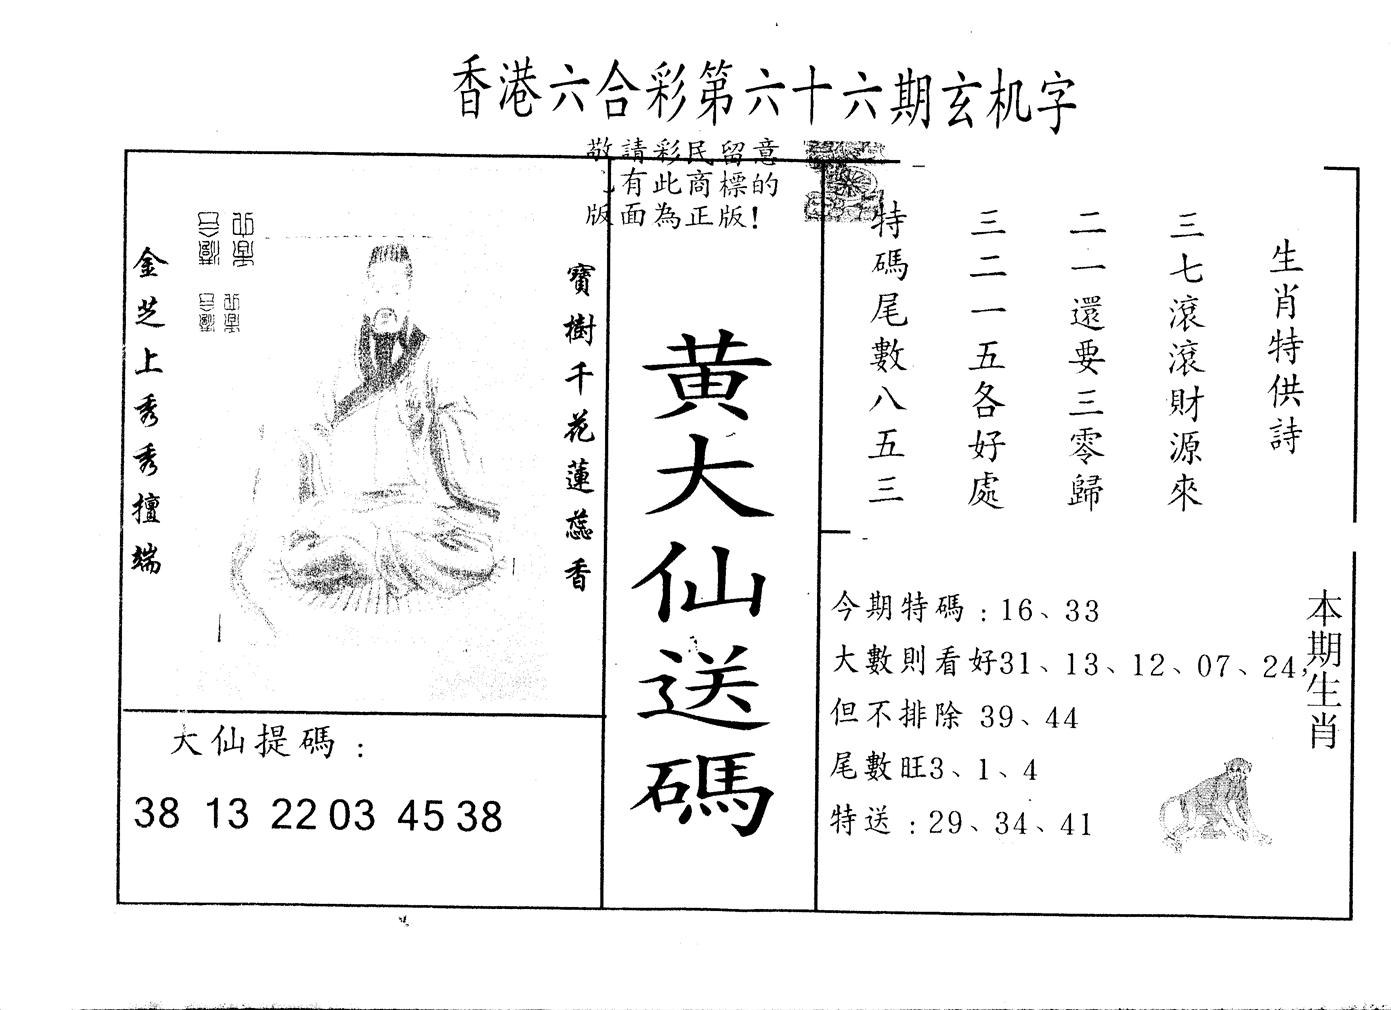 香港六合彩第六十六期玄机字
敬請彩民留意
有此商標的
版面為正版!
生肖特供詩
三七滾滾財源來
二一還要三零歸
三二一五各好處
特碼尾數八五三
寶樹千花蓮蕊香
金芝上秀秀擅端
黄大仙送碼
大仙提碼:
38 13 22 03 45 38
今期特碼:16、33
大數則看好31、13、12、07、24,
但不排除 39、44
尾數旺3、1、4
特送:29、34、41
本期生肖